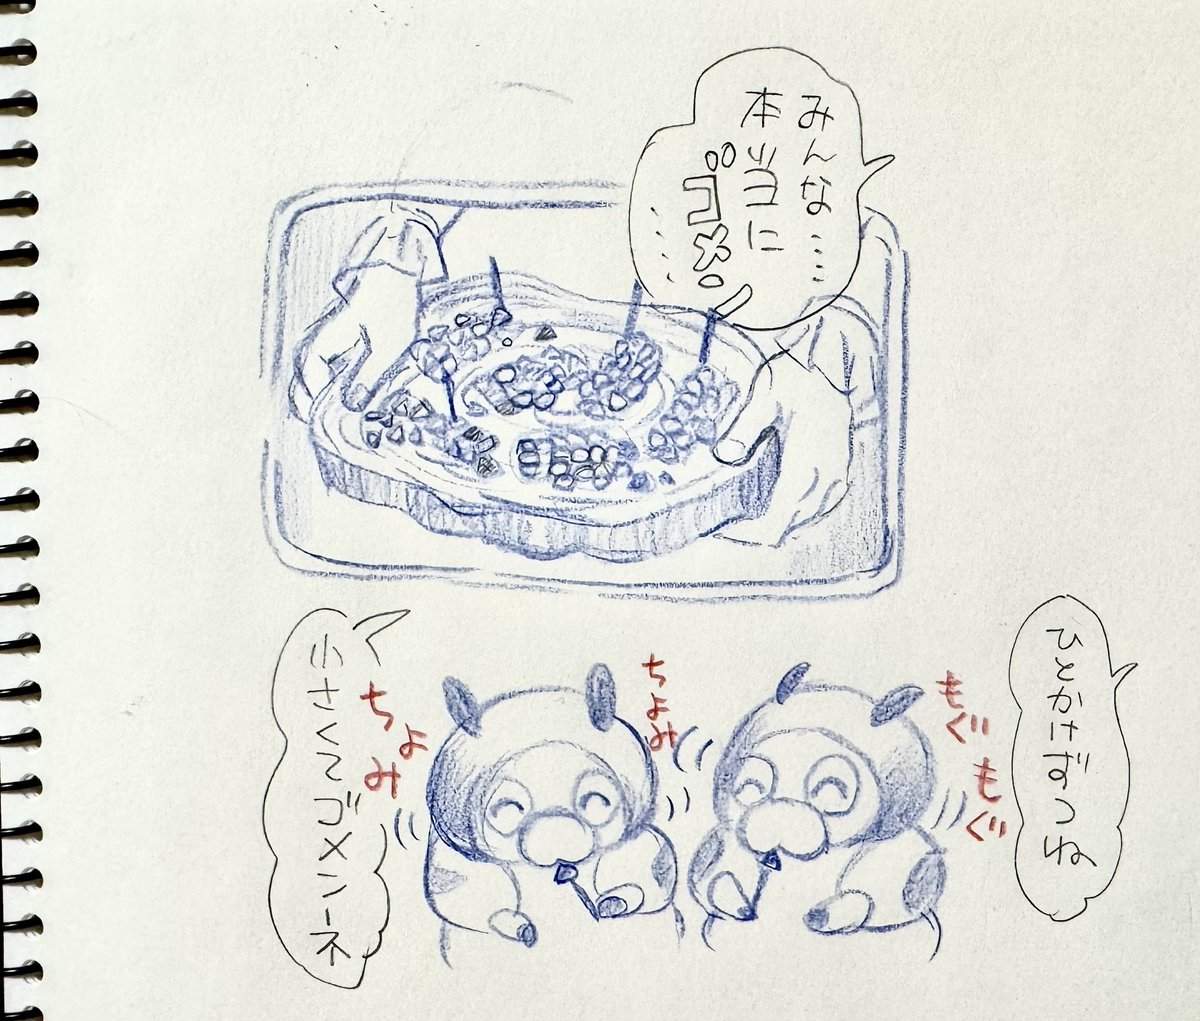 みんな……
本当に
ゴメン
……
ひとかけずつね
もぐ
もぐ
ちょみ
ちょみ
小さくてゴメンーネ